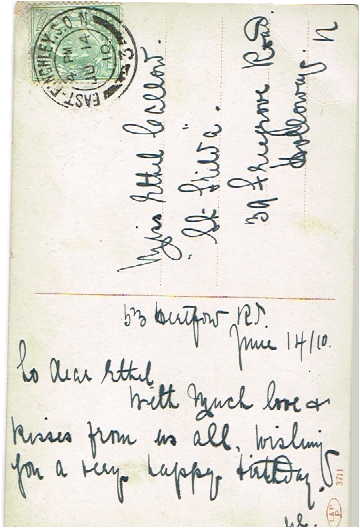 EAST-FINCHLEY.S.O.N.
PM
JU 14
10
Miss Ethel Callow.
"St Hilda".
39 Freegrove Road
Holloway. N
53 Rd.
June 14/10.
To dear Ethel
With much love &
kisses from us all, wishing
you a very happy birthday.
3711